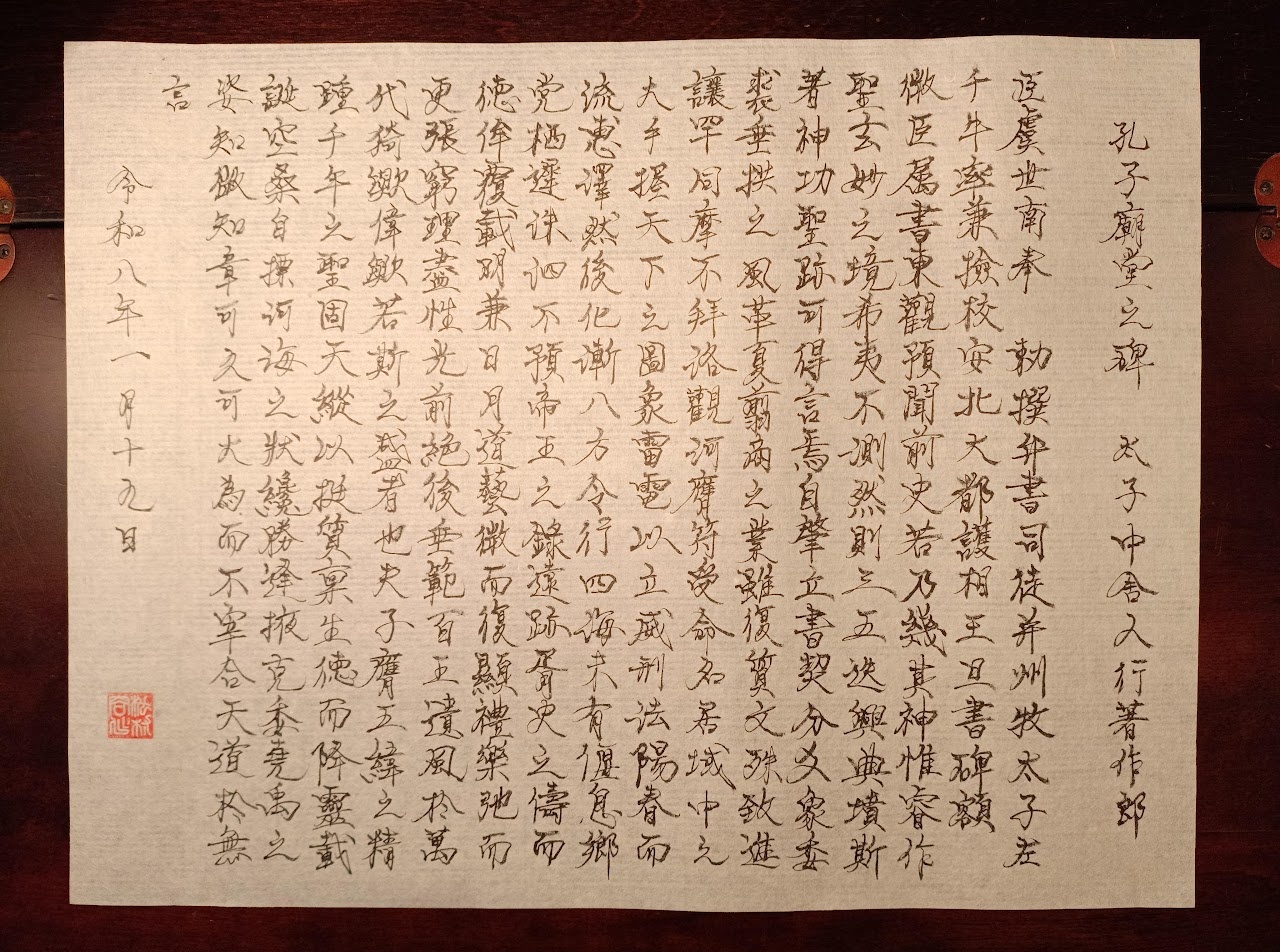 孔子廟堂之碑　太子中舎人行著作郎
臣虞世南奉　勅撰并書司徒并州牧太子左
千牛率兼撿校安北大都護相王旦書碑額
微臣属書東觀預聞前史若乃幾其神惟睿作
聖玄妙之境希夷不測然則三五迭興典墳斯
著神功聖跡可得言焉自肇立書契分爻象委
裘垂拱之風革夏翦商之業雖復質文殊致進
讓罕同摩不拜洛觀河膺符受命名居域中之
大手握天下之圖象雷電以立威刑法陽春而
流恵澤然後化漸八方令行四海未有偃息鄉
党栖遲洙泗不預帝王之錄遠跡胥史之儔而
德侔覆載明兼日月道藝微而復顯禮樂弛而
更張窮理盡性光前絶後垂範百王遺風於萬
代猗歟偉歟若斯之盛者也夫子膺五緯之精
踵千年之聖固天縱以挺質稟生德而降靈載
誕空桑自摽河海之狀纔勝逢掖克秀堯禹之
姿知微知章可久可大為而不宰合天道於無
言
令和八年一月十九日